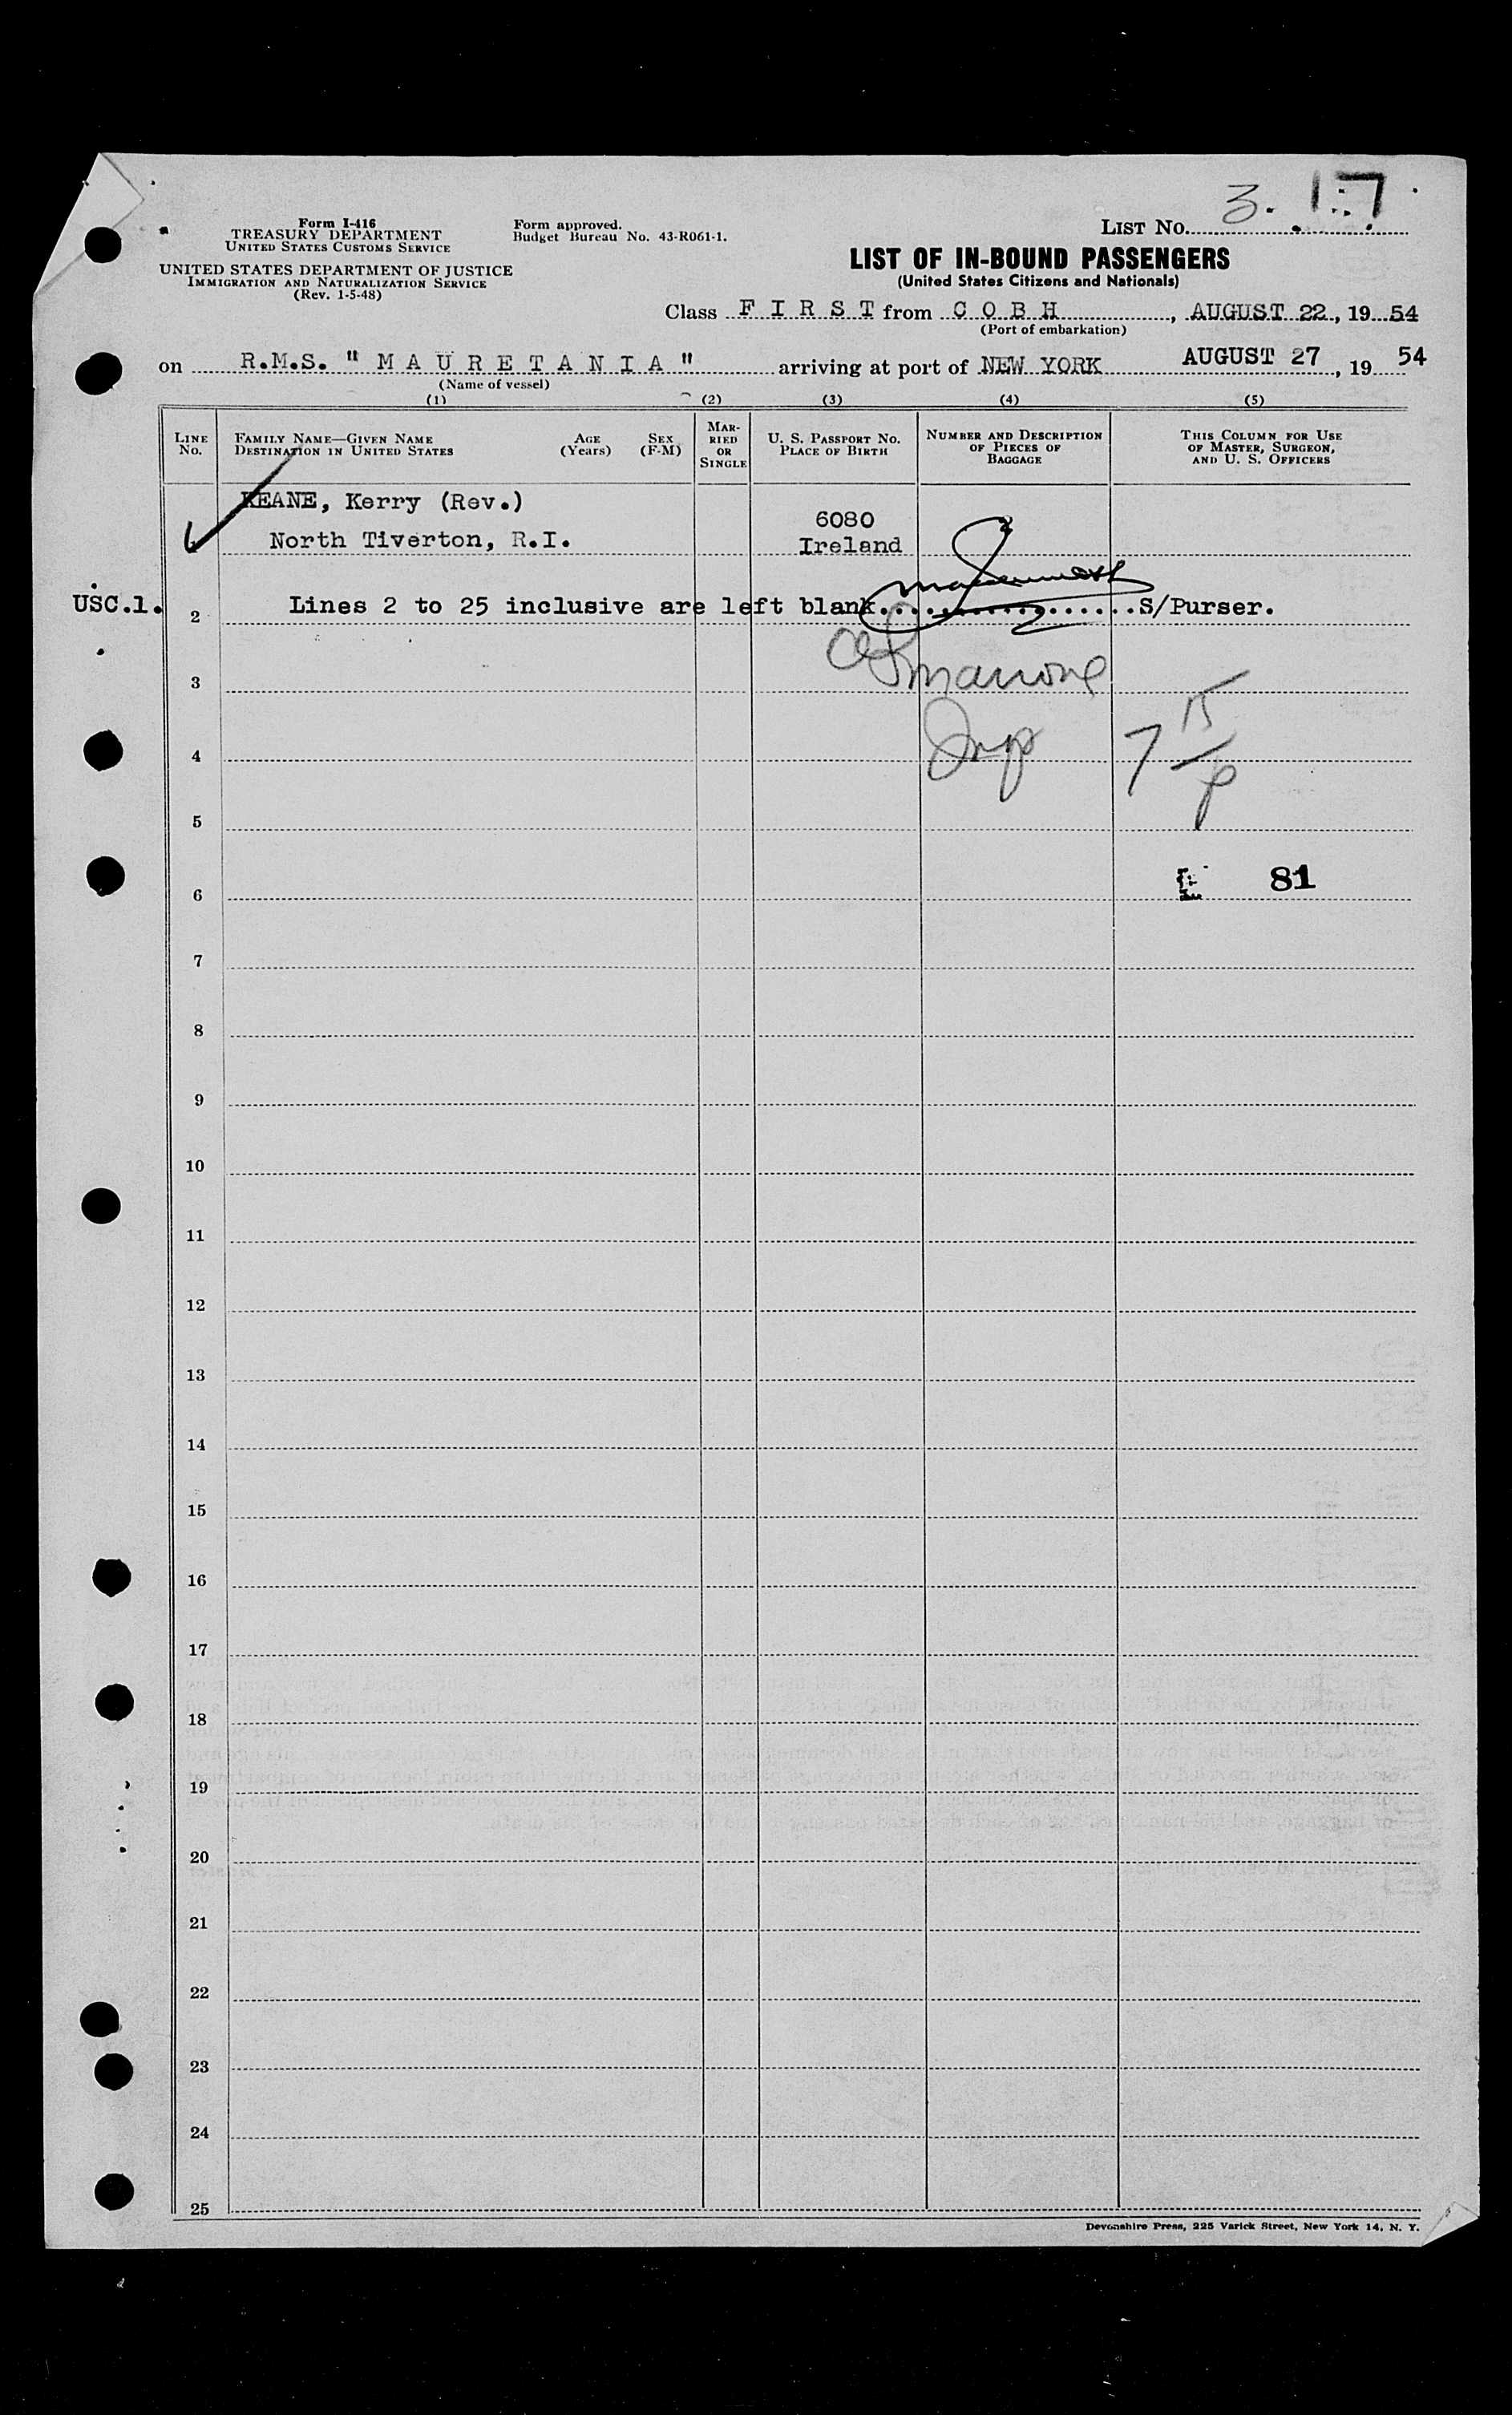 Form I-416
TREASURY DEPARTMENT
UNITED STATES CUSTOMS SERVICE
UNITED STATES DEPARTMENT OF JUSTICE
IMMIGRATION AND NATURALIZATION SERVICE
(Rev. 1-5-48)
Form approved.
Budget Bureau No. 43-R061-1.
LIST NO. 3. 17
LIST OF IN-BOUND PASSENGERS
(United States Citizens and Nationals)
Class F I R S T from C O B H, AUGUST 22, 19 54
(Port of embarkation)
on R.M.S. " M A U R E T A N I A " arriving at port of NEW YORK AUGUST 27, 19 54
(Name of vessel)
(1) (2) (3) (4) (5)
LINE NO.
FAMILY NAME—GIVEN NAME
DESTINATION IN UNITED STATES
AGE (Years)
SEX (F-M)
MARRIED OR SINGLE
U. S. PASSPORT NO.
PLACE OF BIRTH
NUMBER AND DESCRIPTION
OF PIECES OF
BAGGAGE
THIS COLUMN FOR USE
OF MASTER, SURGEON,
AND U. S. OFFICERS
KEANE, Kerry (Rev.)
6080
North Tiverton, R.I.
Ireland
USC.1.
2 Lines 2 to 25 inclusive are left blank..................S/Purser.
3
4 Insp 7 15/p
5
6 81
7
8
9
10
11
12
13
14
15
16
17
18
19
20
21
22
23
24
25
Devonshire Press, 225 Varick Street, New York 14, N. Y.